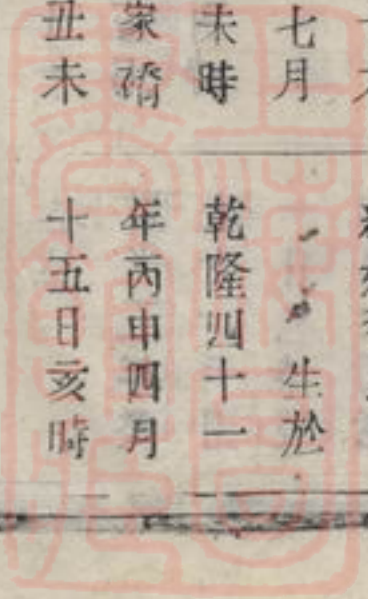 七月
未時
家
丑未
生於
乾隆四十一
年丙申四月
十五日亥時